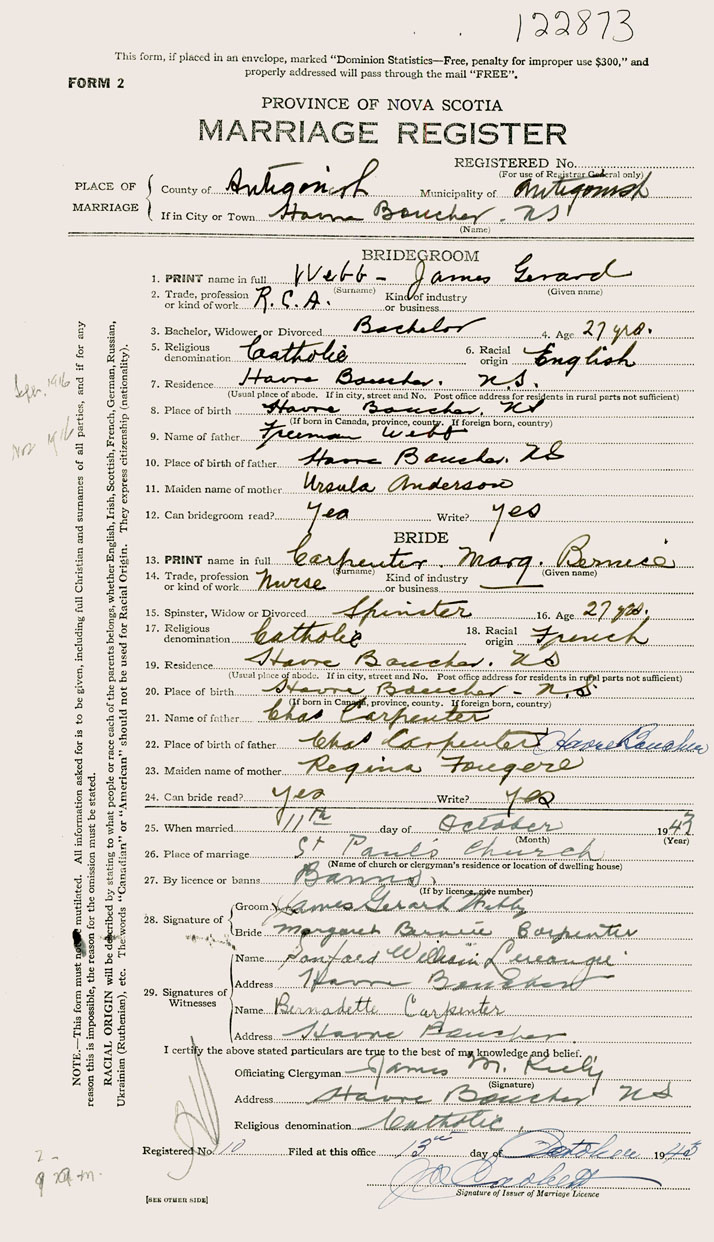 122873
This form, if placed in an envelope, marked "Dominion Statistics—Free, penalty for improper use $300," and
properly addressed will pass through the mail "FREE".
FORM 2
PROVINCE OF NOVA SCOTIA
MARRIAGE REGISTER
REGISTERED No.
(For use of Registrar General only)
PLACE OF MARRIAGE
County of Antigonish Municipality of Antigonish
If in City or Town Havre Boucher. NS
(Name)
BRIDEGROOM
1. PRINT name in full Webb - James Gerard
(Surname) (Given name)
2. Trade, profession or kind of work R.C.A. Kind of industry or business
3. Bachelor, Widower or Divorced Bachelor 4. Age 27 yrs.
5. Religious denomination Catholic 6. Racial origin English
7. Residence Havre Boucher. N.S.
(Usual place of abode. If in city, street and No. Post office address for residents in rural parts not sufficient)
8. Place of birth Havre Boucher. NS
(If born in Canada, province, county. If foreign born, country)
9. Name of father Freeman Webb
10. Place of birth of father Havre Boucher. NS
11. Maiden name of mother Ursula Anderson
12. Can bridegroom read? Yea Write? Yes
BRIDE
13. PRINT name in full Carpenter. Marg. Bernice
(Surname) (Given name)
14. Trade, profession or kind of work Nurse Kind of industry or business
15. Spinster, Widow or Divorced Spinster 16. Age 27 yrs.
17. Religious denomination Catholic 18. Racial origin French
19. Residence Havre Boucher. NS
(Usual place of abode. If in city, street and No. Post office address for residents in rural parts not sufficient)
20. Place of birth Havre Boucher - N.S.
(If born in Canada, province, county. If foreign born, country)
21. Name of father Chas Carpenter
22. Place of birth of father Chas Carpenter Havre Boucher
23. Maiden name of mother Regina Fougere
24. Can bride read? Yes Write? Yes
25. When married 11th day of October 1943
(Month) (Year)
26. Place of marriage St Paul's Church
(Name of church or clergyman's residence or location of dwelling house)
27. By licence or banns Banns
(If by licence, give number)
28. Signature of
Groom James Gerard Webb
Bride Margaret Bernice Carpenter
29. Signatures of Witnesses
Name William
Address Havre Boucher
Name Bernadette Carpenter
Address Havre Boucher
I certify the above stated particulars are true to the best of my knowledge and belief.
Officiating Clergyman James M. Kiely
(Signature)
Address Havre Boucher NS
Religious denomination Catholic
Registered No. 10 Filed at this office 13th day of October 1943
Signature of Issuer of Marriage Licence
[SEE OTHER SIDE]
NOTE.—This form must not be mutilated. All information asked for is to be given, including full Christian and surnames of all parties, and if for any
reason this is impossible, the reason for the omission must be stated.
RACIAL ORIGIN will be described by stating to what people or race each of the parents belongs, whether English, Irish, Scottish, French, German, Russian,
Ukrainian (Ruthenian), etc. The words "Canadian" or "American" should not be used for Racial Origin. They express citizenship (nationality).
Sept. 1916
Nov 1916